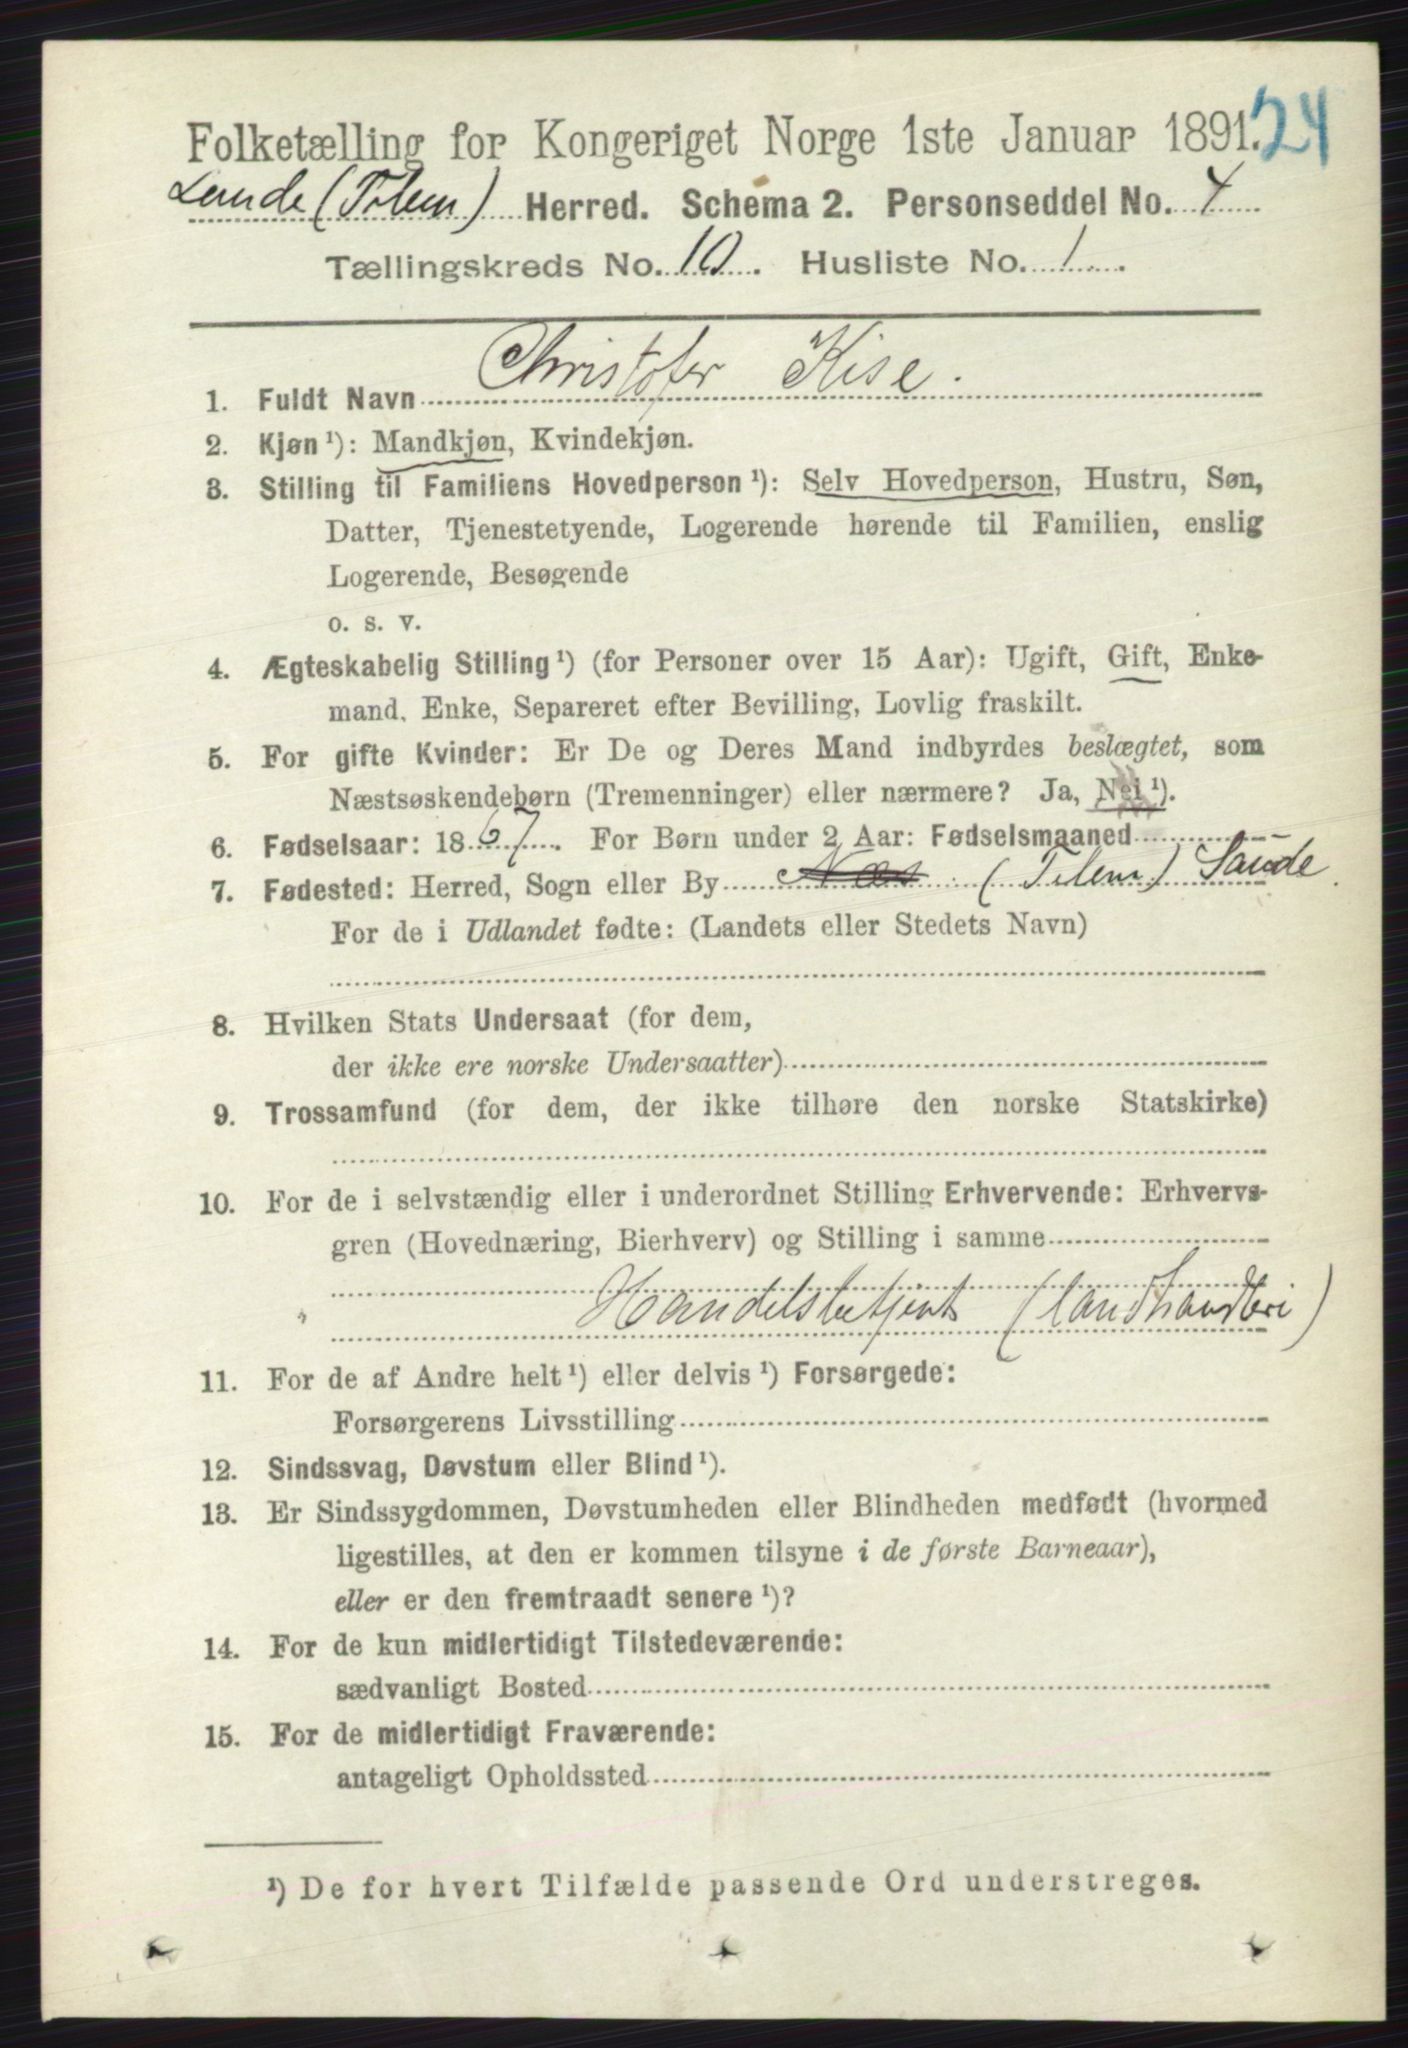 Folketælling for Kongeriget Norge 1ste Januar 1891. 24
Lunde (Tilem) Herred. Schema 2. Personseddel No. 4
Tællingskreds No. 10. Husliste No. 1.
1. Fuldt Navn Christofer Kise.
2. Kjøn ¹): Mandkjøn, Kvindekjøn.
3. Stilling til Familiens Hovedperson ¹): Selv Hovedperson, Hustru, Søn,
Datter, Tjenestetyende, Logerende hørende til Familien, enslig
Logerende, Besøgende
o. s. v.
4. Ægteskabelig Stilling ¹) (for Personer over 15 Aar): Ugift, Gift, Enke-
mand, Enke, Separeret efter Bevilling, Lovlig fraskilt.
5. For gifte Kvinder: Er De og Deres Mand indbyrdes beslægtet, som
Næstsøskendebørn (Tremenninger) eller nærmere? Ja, Nei ¹).
6. Fødselsaar: 1867. For Børn under 2 Aar: Fødselsmaaned
7. Fødested: Herred, Sogn eller By Næs (Tilem) Saude
For de i Udlandet fødte: (Landets eller Stedets Navn)
8. Hvilken Stats Undersaat (for dem,
der ikke ere norske Undersaatter)
9. Trossamfund (for dem, der ikke tilhøre den norske Statskirke)
10. For de i selvstændig eller i underordnet Stilling Erhvervende: Erhvervs-
gren (Hovednæring, Bierhverv) og Stilling i samme
Handelsbetjent (landhandleri)
11. For de af Andre helt ¹) eller delvis ¹) Forsørgede:
Forsørgerens Livsstilling
12. Sindssvag, Døvstum eller Blind ¹).
13. Er Sindssygdommen, Døvstumheden eller Blindheden medfødt (hvormed
ligestilles, at den er kommen tilsyne i de første Barneaar),
eller er den fremtraadt senere ¹)?
14. For de kun midlertidigt Tilstedeværende:
sædvanligt Bosted
15. For de midlertidigt Fraværende:
antageligt Opholdssted
¹) De for hvert Tilfælde passende Ord understreges.